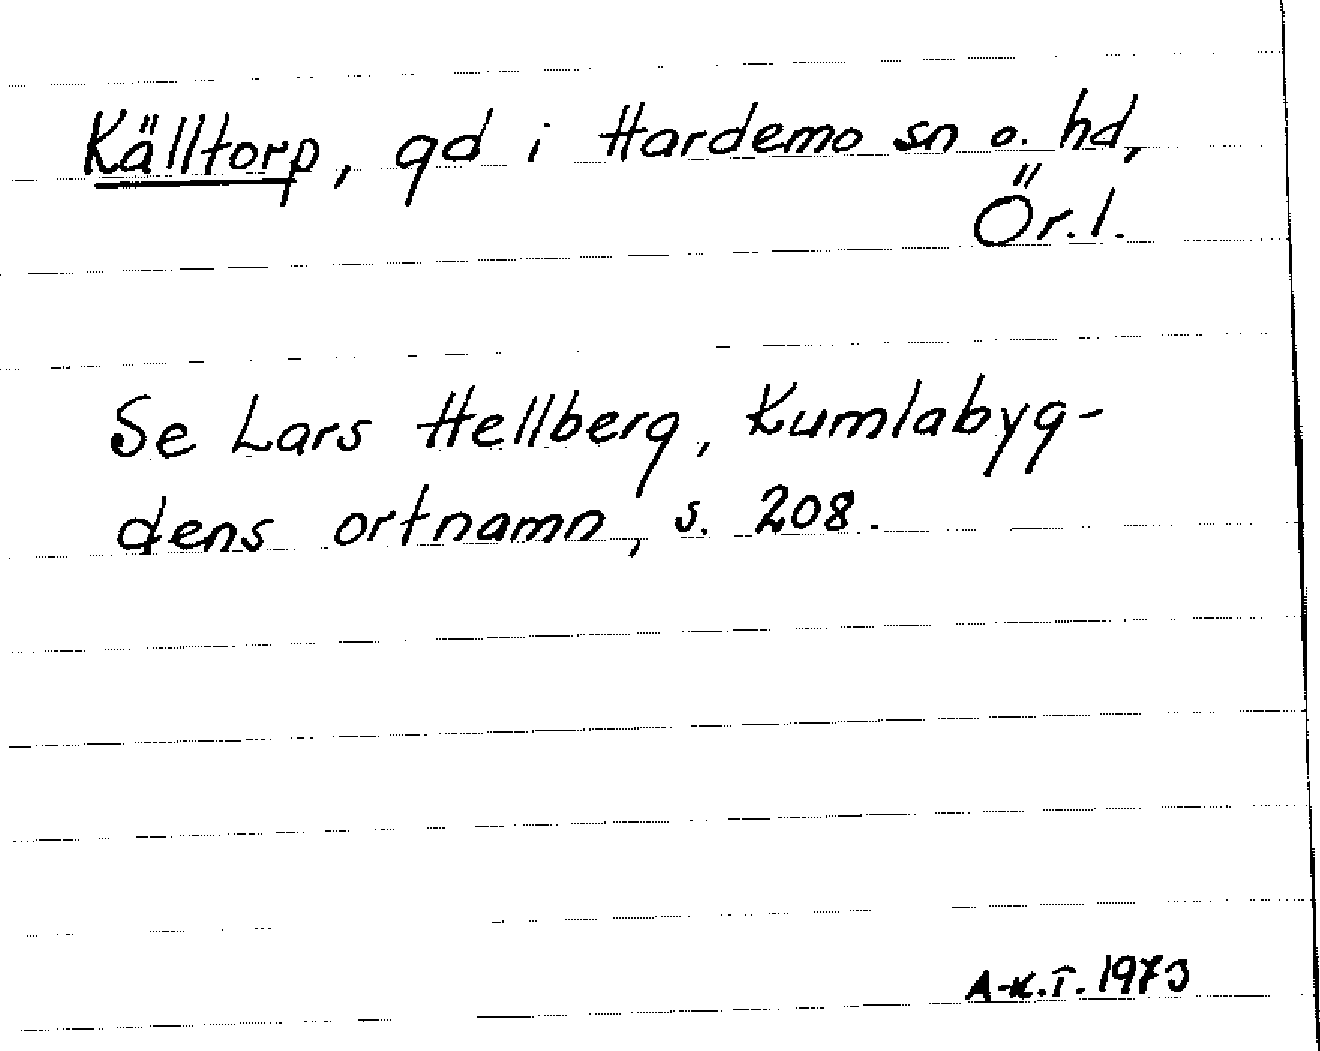 Källtorp, gd i Hardemo sn o. hd,
Ör. l.
Se Lars Hellberg, Kumlabyg-
dens ortnamn, s. 208.
A-K.T. 1973